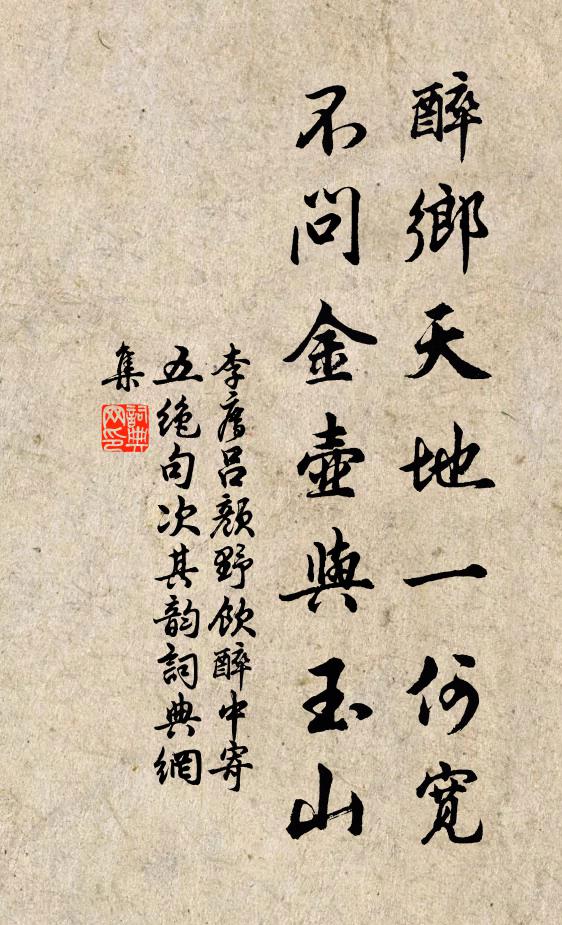 醉鄉天地一何寬
不問金壺與玉山
李呂顏野飲醉中寄
五絕句次其韻詞典網
集
詞典网印